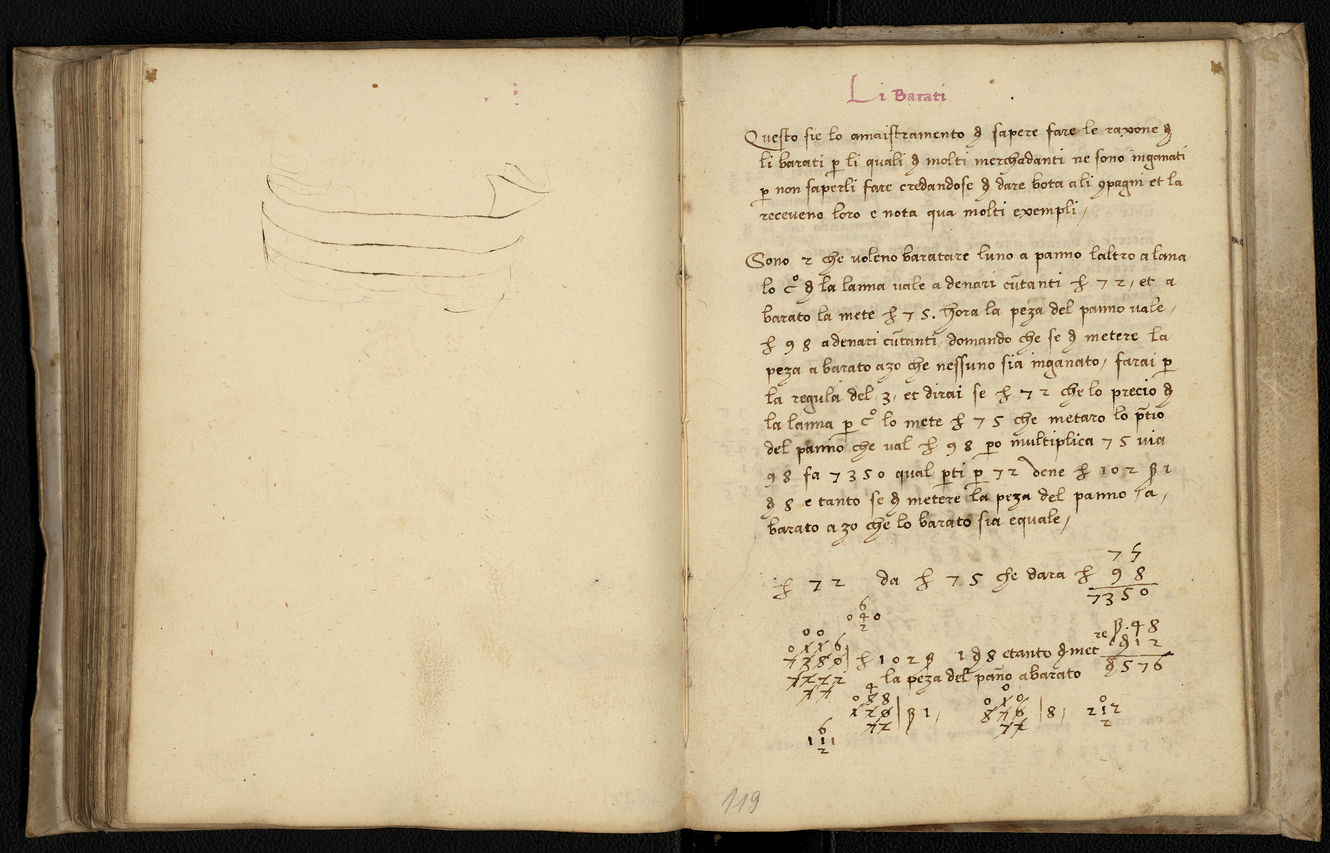 Li Barati
Questo sie lo amaistramento đ sapere fare le raxone đ
li barati ꝑ li quali đ molti merchadanti ne sono inganati
ꝑ non saperli fare credandose đ dare bota ali ꝯpagni et la
receveno loro e nota qua molti exempli /
Sono 2 che voleno baratare luno a panno laltro a lana
lo cº đ la lanna vale a denari cūtanti ₶ 72, et a
barato la mete ₶ 75. hora la peza del panno vale,
₶ 98 a denari cūtanti, domando che se đ metere la
peza a barato azo che nessuno sia inganato, farai ꝑ
la regula del .3. et dirai se ₶ 72 che lo precio đ
la lanna ꝑ cº lo mete ₶ 75 che metaro lo p̄tio
del panno che val ₶ 98 ꝑo multiplica 75 via
98 fa 7350 qual ꝑti ꝑ 72 vene ₶ 102 ß 1
đ 8 e tanto se đ metere la peza del panno / a,
barato azo che lo barato sia equale /
75
₶ 72 da ₶ 75 che dara ₶ 98
7350
6
0 4 0
2
ß. 48
₶ 102 ß 1 đ 8 e tanto đ metere đ 12
la peza del pano a barato đ 576
ß 1,
8,
0
2 1 2
2
6
1 1 1
2
119